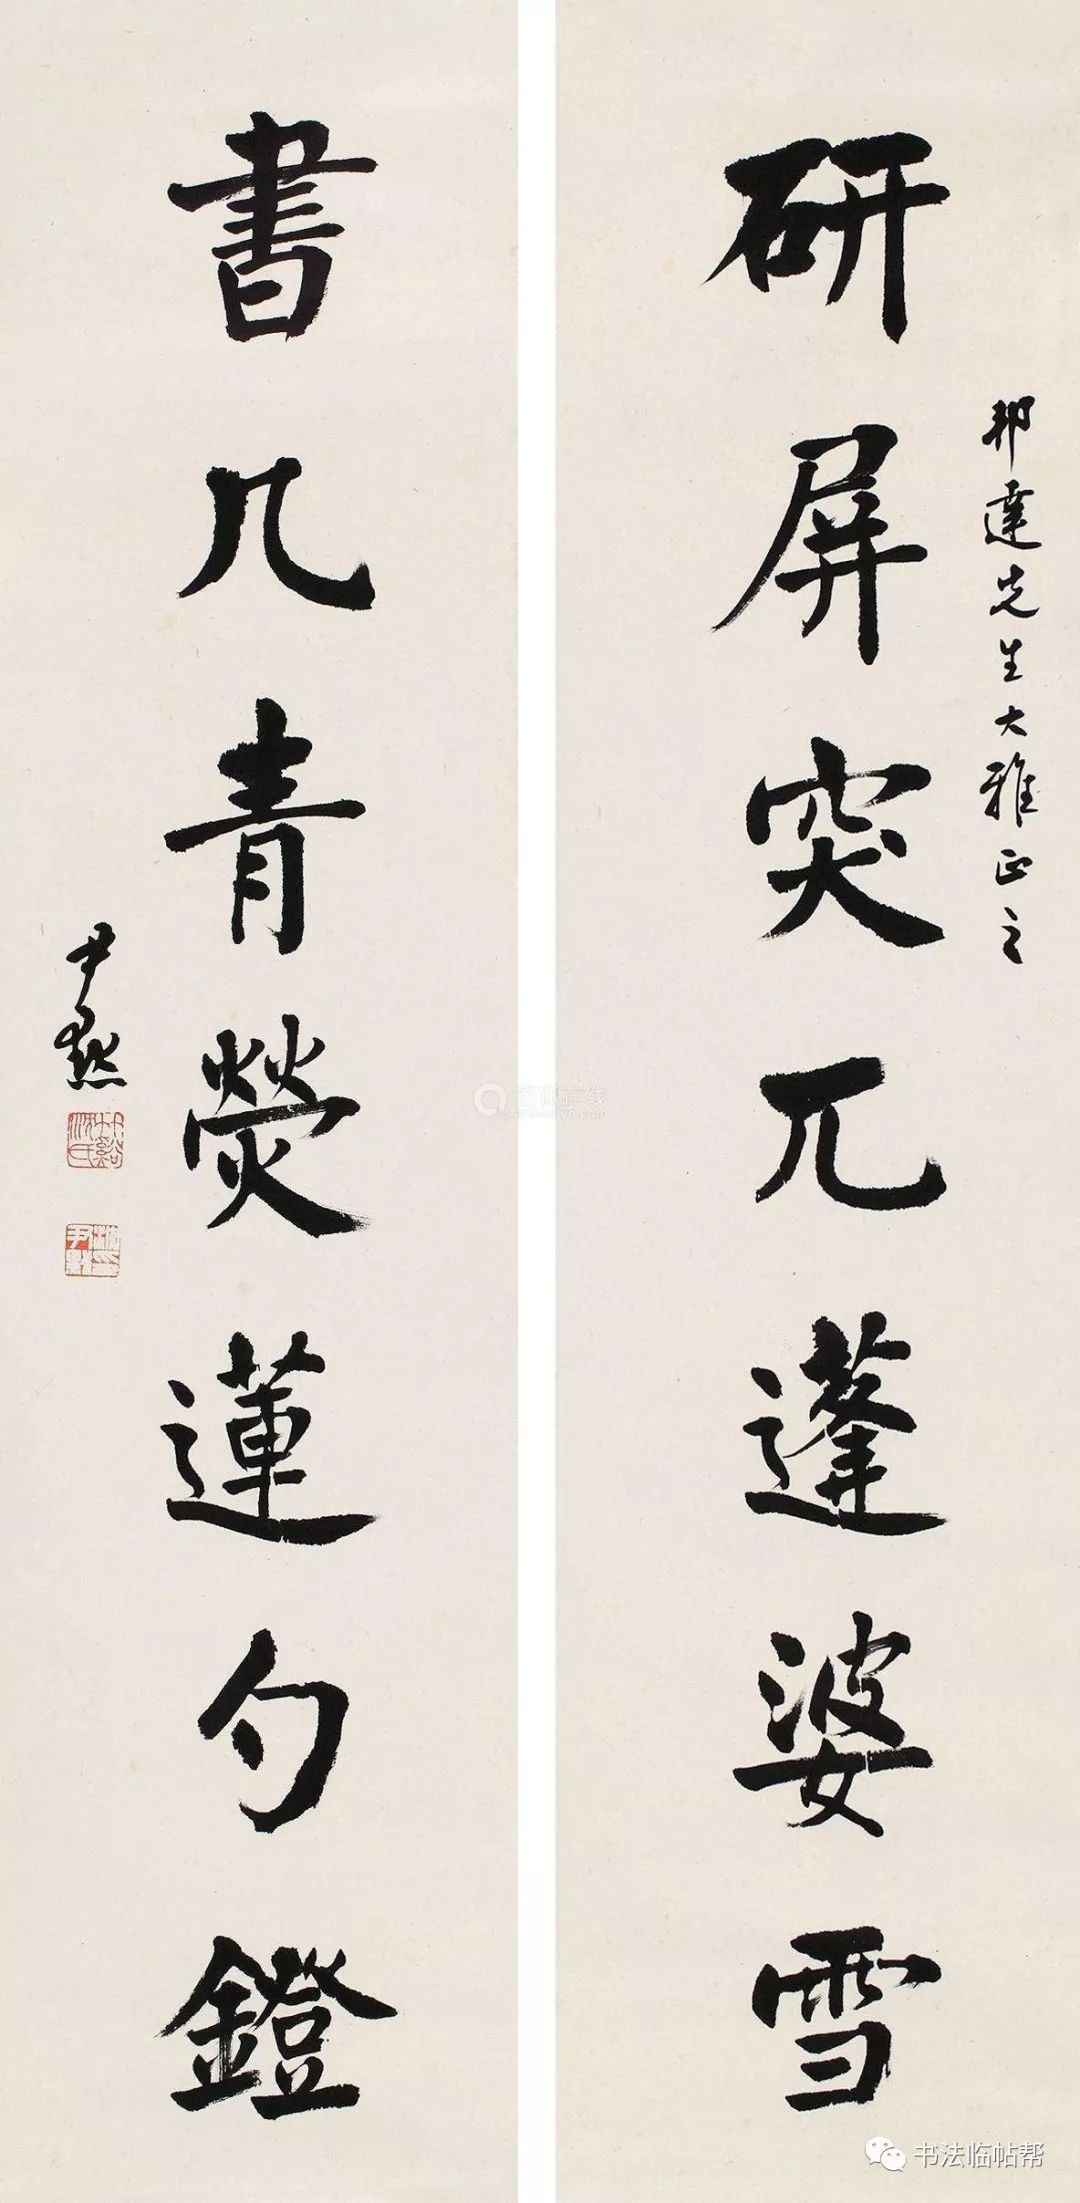 研屏突兀蓬婆雪
邦達先生大雅正之
書几青熒蓮勺鐙
尹默
竹谿沈氏
书法临帖帮